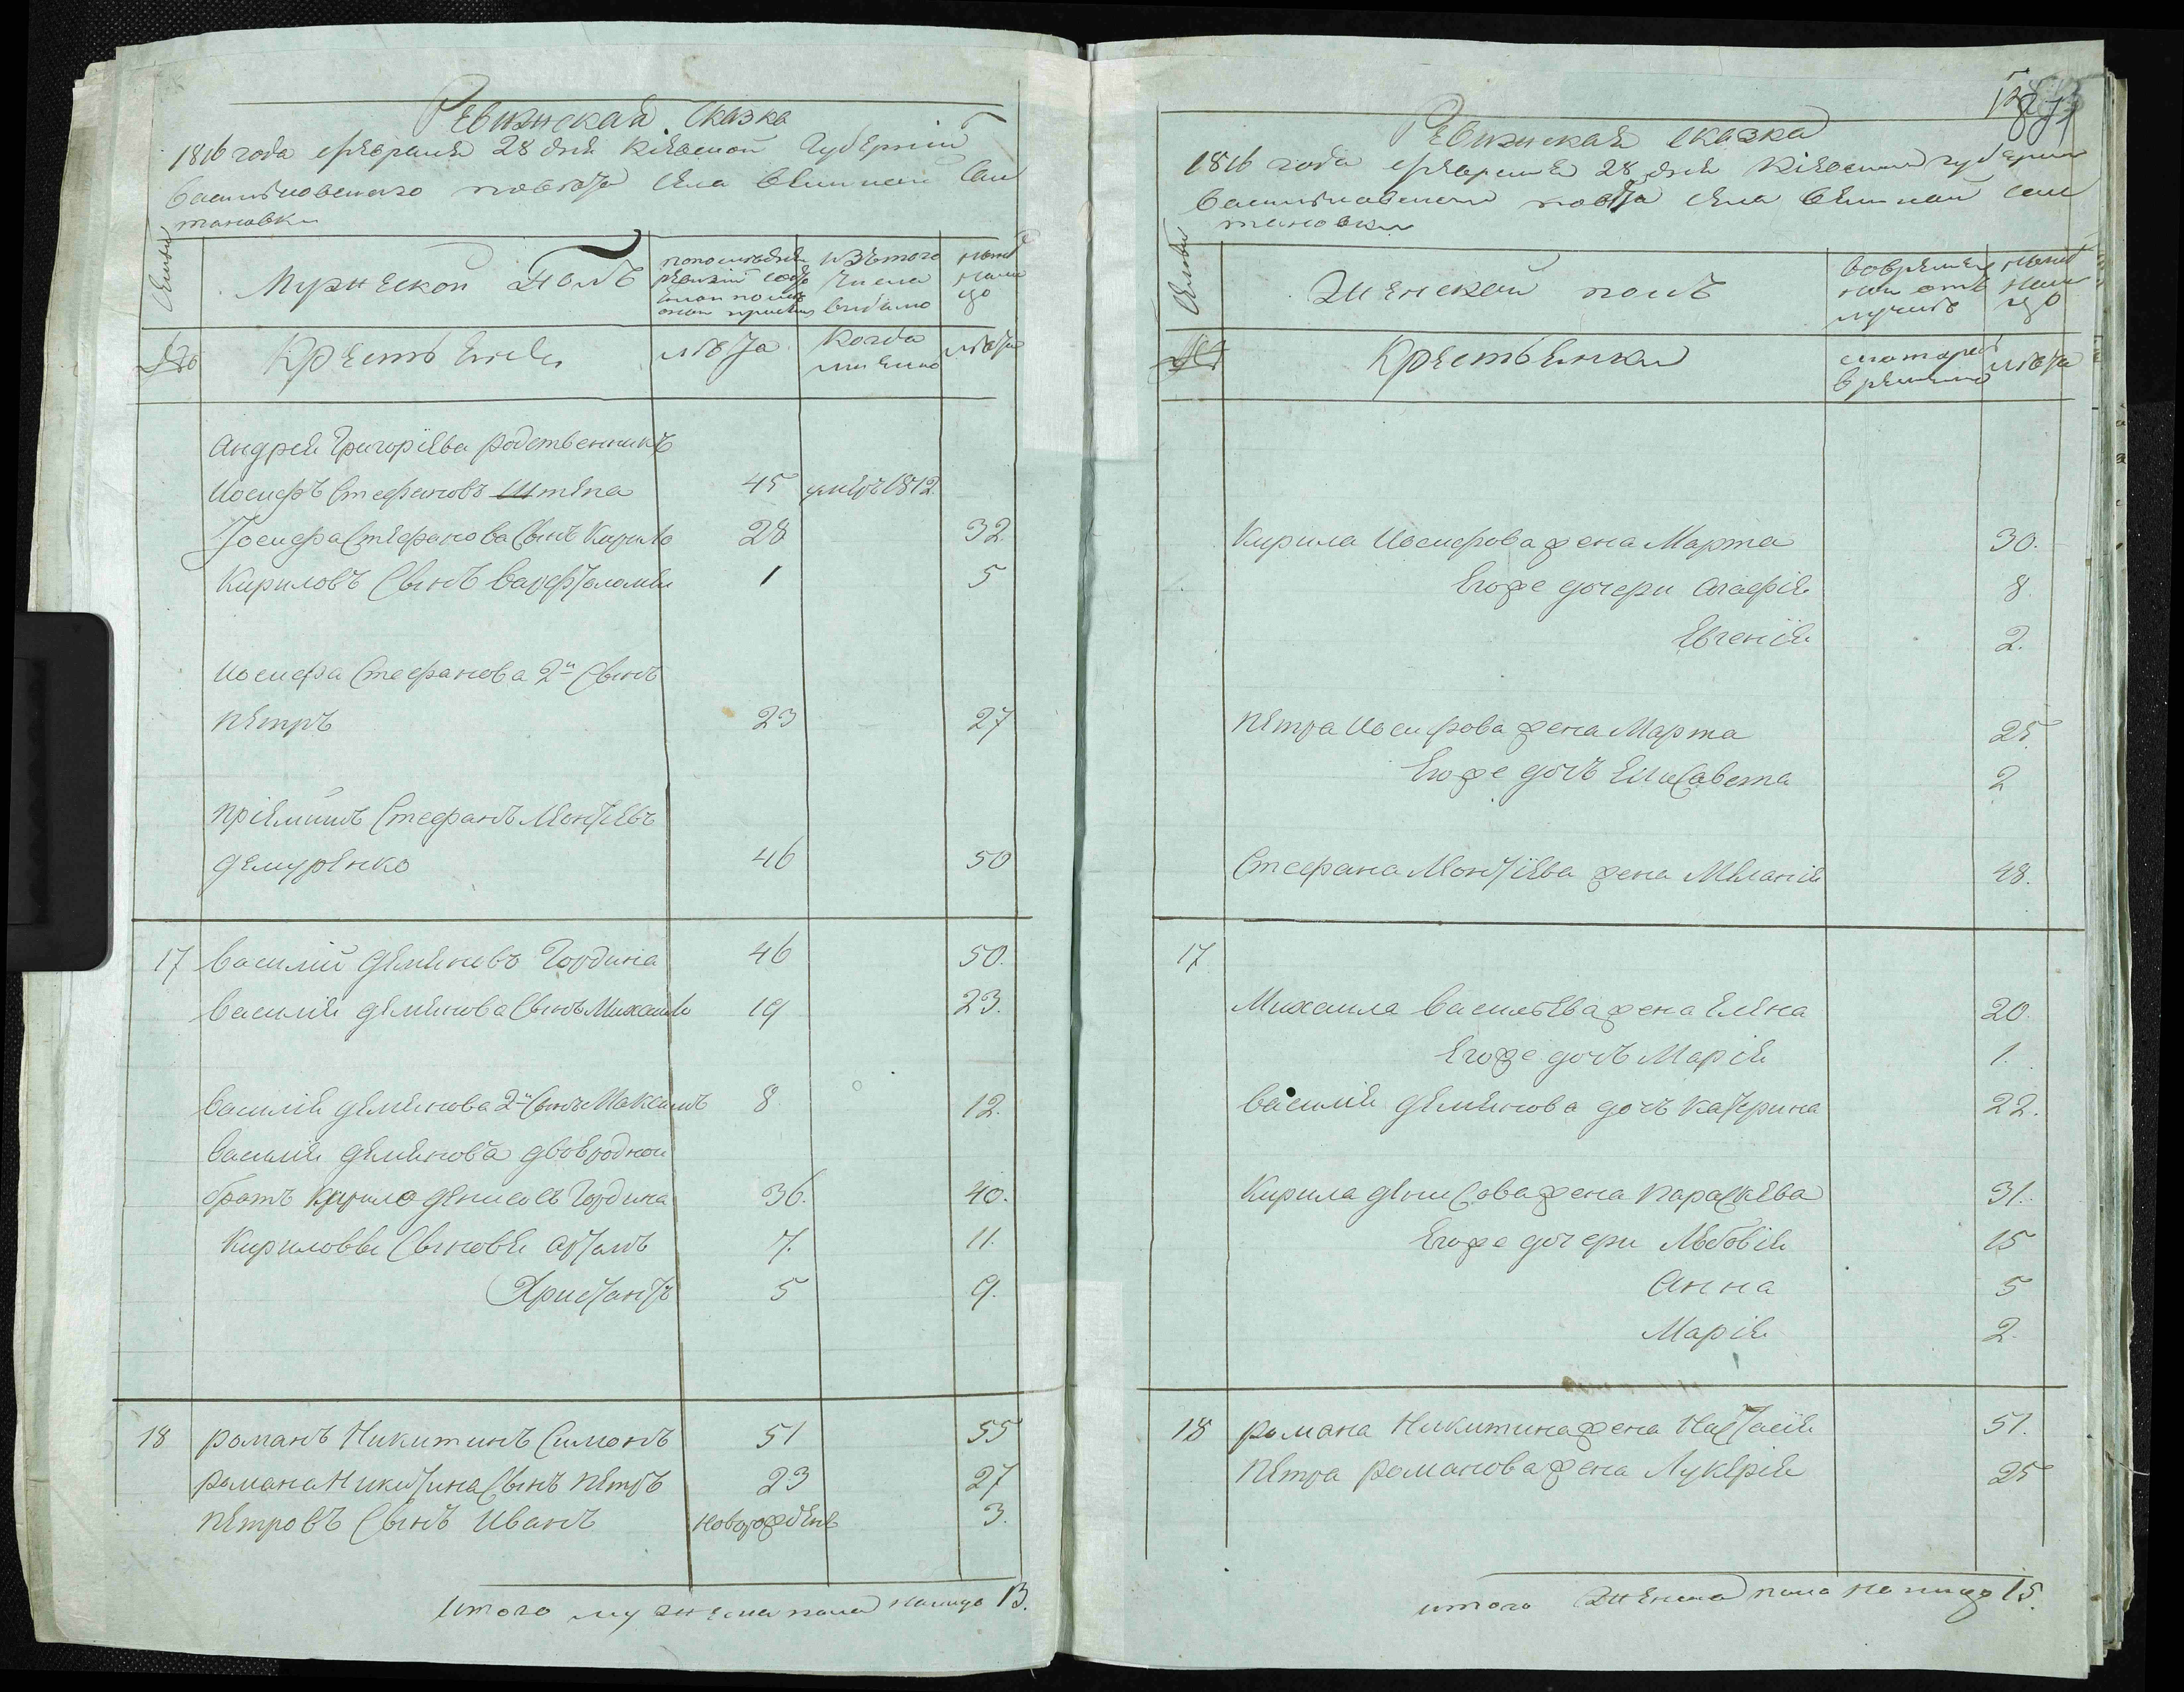 Ревижская Сказка
1816 года февраля 28 дня Кіевской Губерніи
Васильковского повета села великой Сал
тановки
Семьи
Мужеской полъ
по последней ревизіи состояло и после оной прибыло
Изъ того числа выбыло
ныне на лицо
№
Крестьяне
лета
Когда именно
лета
Андрея Григоріева родственникъ
Иосифъ Стефановъ Штепа 45 умеръ 1812
Іосифа Стефанова Сынъ Кирило 28 32
Кириловъ Сынъ Варфоломей 1 5
Иосифа Стефанова 2й Сынъ
Петръ 23 27
Пріемышъ Стефанъ Леонтіевъ
Демуренко 46 50
17 Василій Деменовъ Гордина 46 50.
Василія Деменова Сынъ Михаило 19 23.
Василія Деменова 2й Сынъ Максимъ 8 12.
Василія Деменова двоюродной
братъ Кирило Денисовъ Гордина 36. 40.
Кириловы Сыновья Артамъ 7. 11.
Христантъ 5 9.
18 Романъ Никитинъ Симонъ 51 55
Романа Никитина Сынъ Петръ 23 27
Петровъ Сынъ Иванъ новорожденъ 3.
Итого мужеска пола налицо 13.
Ревижская Сказка
1816 года февраля 28 дня Кіевской губерніи
Васильковского повета села великой Сал
тановки
Семьи
Женской полъ
во временной отлучке
ныне на лицо
№
Крестьянки
с которого времени
лета
Кирила Иосифова жена Марта 30.
Егоже дочери Агафія 8
Евгенія 2.
Петра Иосифова жена Марта 25.
Егоже дочь Елисавета 2
Стефана Леонтіева жена Меланія 48.
17
Михаила Васильева жена Елена 20.
Егоже дочь Марія 1.
Василія Деменова дочь Катерина 22.
Кирила Денисова жена Параскева 31.
Егоже дочери Любовія 15
Анна 5
Марія 2.
18 Романа Никитина жена Настасія 51.
Петра Романова жена Лукерія 25
Итого Женска пола на лицо 15.